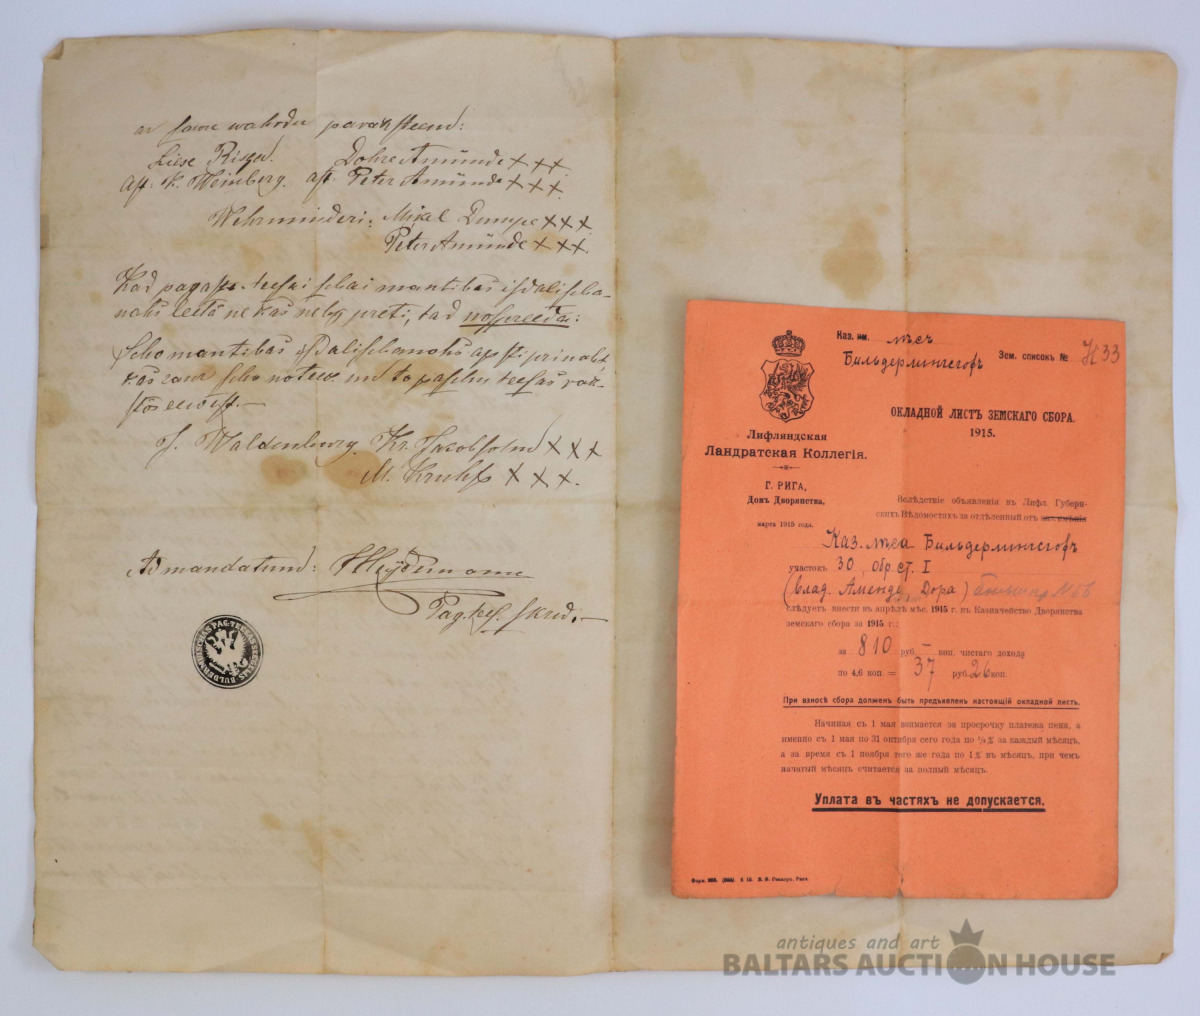 ar sawu wahrdu paraksteem:
Liese Dohre Amünde XXX.
apst. K. Weinberg. apst. Peter Amünde XXX
Wehrminderi: Mikel XXX
Peter Amünde XXX.
Kad pagasta teesai schai mantibas isdalischa-
nahs leetâ ne kas nebij preti, tad nospreeda:
Scho mantibas isdalischanahs apstiprinaht
kas zaur scho noteek un to paschu teesas rak-
stôs eewest.—
J. Waldenburg. Kr. Jacobsohn XXX
M. XXX.
Ad mandatum:
Pag. tees. skrih.
Каз. им. лѣсъ
Бильдерлингсгофъ
Зем. списокъ № 33
ОКЛАДНОЙ ЛИСТЪ ЗЕМСКАГО СБОРА.
1915.
Лифляндская
Ландратская Коллегія.
Г. РИГА,
Домъ Дворянства.
марта 1915 года.
Вслѣдствіе объявленія въ Лифл. Губерн-
скихъ Вѣдомостяхъ за отдѣленный отъ каз. имѣнія
Каз. лѣса Бильдерлингсгофъ
участокъ 30, Обр. ст. I
(влад. Аменде, Дора)
слѣдуетъ внести въ апрѣлѣ мѣс. 1915 г. въ Казначейство Дворянства
земскаго сбора за 1915 г.:
за 810 руб. — коп. чистаго дохода
по 4,6 коп. = 37 руб. 26 коп.
При взносѣ сбора долженъ быть предъявленъ настоящій окладной листъ.
Начиная съ 1 мая взимается за просрочку платежа пеня, а
именно съ 1 мая по 31 октября сего года по ½ % за каждый мѣсяцъ,
а за время съ 1 ноября того же года по 1 % въ мѣсяцъ, при чемъ
начатый мѣсяцъ считается за полный мѣсяцъ.
Уплата въ частяхъ не допускается.
antiques and art
BALTARS AUCTION HOUSE